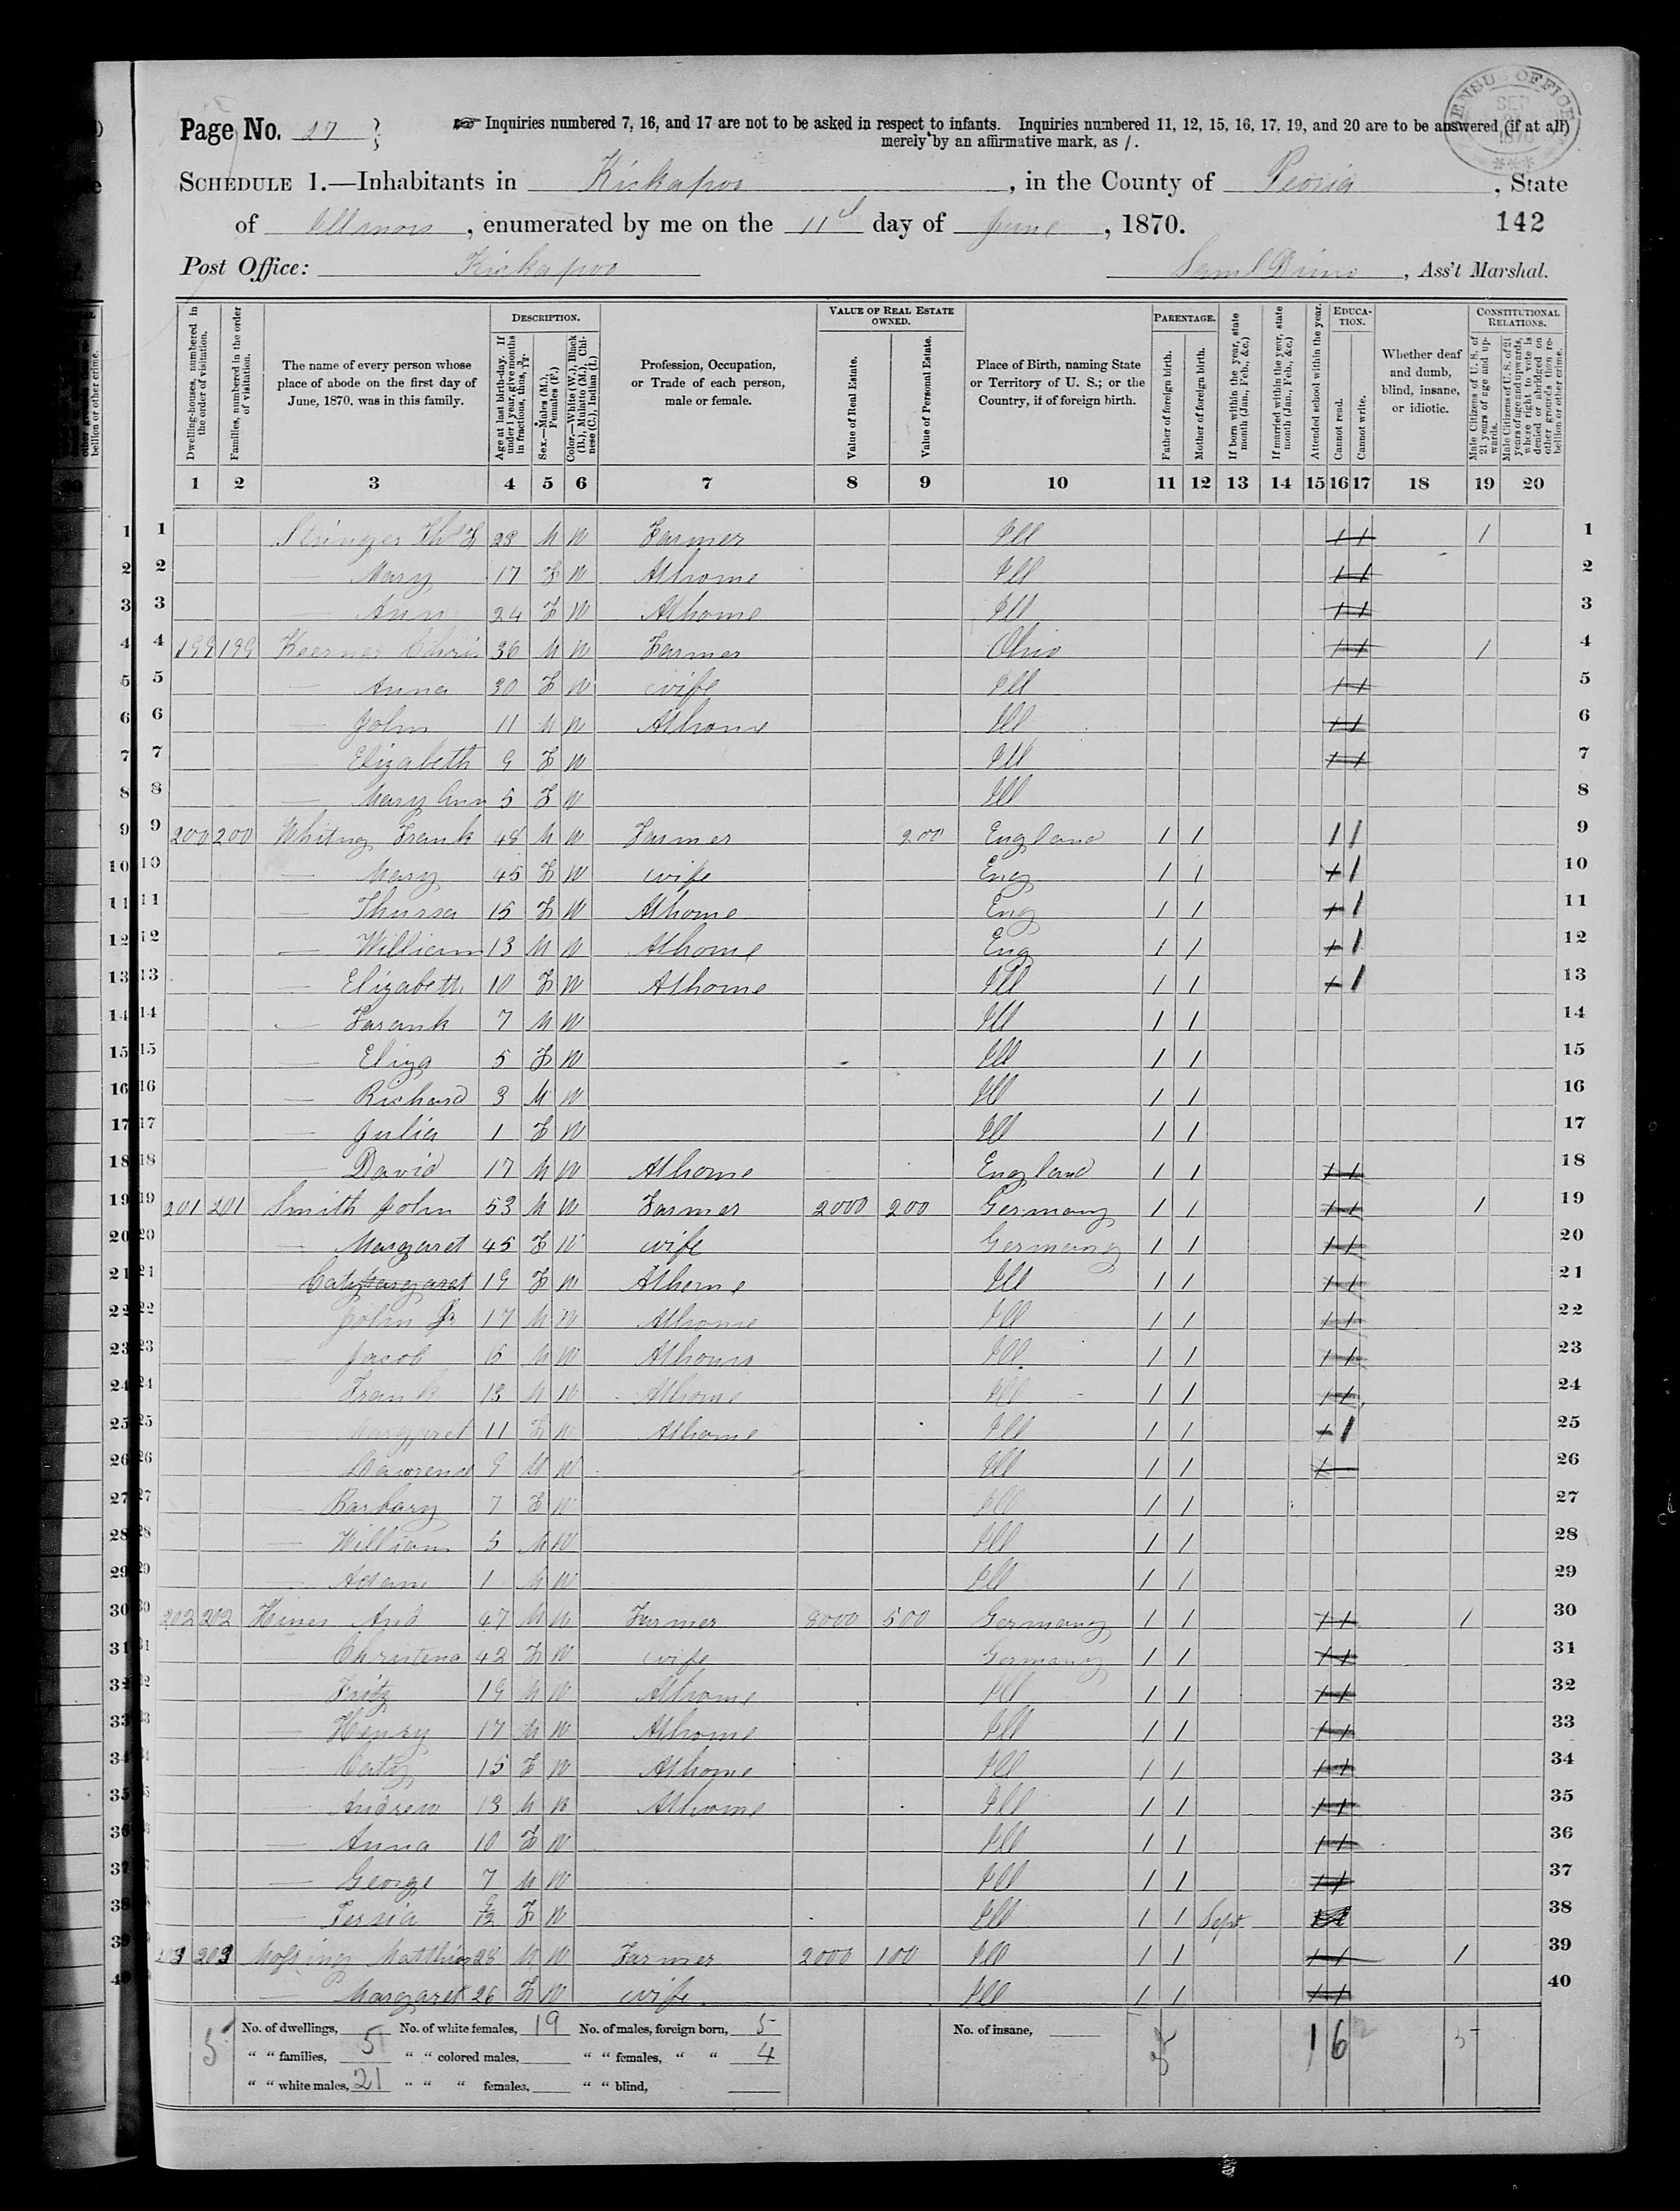 CENSUS OFFICE
SEP
1870
Page No. 27
Inquiries numbered 7, 16, and 17 are not to be asked in respect to infants. Inquiries numbered 11, 12, 15, 16, 17, 19, and 20 are to be answered (if at all)
merely by an affirmative mark, as /.
SCHEDULE 1.—Inhabitants in Kickapoo, in the County of Peoria, State
of Illinois, enumerated by me on the 11th day of June, 1870.
142
Post Office: Kickapoo
Saml, Ass't Marshal.
Dwelling-houses, numbered in the order of visitation.
Families, numbered in the order of visitation.
The name of every person whose place of abode on the first day of June, 1870, was in this family.
DESCRIPTION.
Age at last birth-day. If under 1 year, give months in fractions, thus, 3/12
Sex.—Males (M.), Females (F.)
Color.—White (W.), Black (B.), Mulatto (M.), Chinese (C.), Indian (I.)
Profession, Occupation, or Trade of each person, male or female.
VALUE OF REAL ESTATE OWNED.
Value of Real Estate.
Value of Personal Estate.
Place of Birth, naming State or Territory of U. S.; or the Country, if of foreign birth.
PARENTAGE.
Father of foreign birth.
Mother of foreign birth.
If born within the year, state month (Jan., Feb., &c.)
If married within the year, state month (Jan., Feb., &c.)
Attended school within the year.
EDUCATION.
Cannot read.
Cannot write.
Whether deaf and dumb, blind, insane, or idiotic.
CONSTITUTIONAL RELATIONS.
Male Citizens of U. S. of 21 years of age and upwards.
Male Citizens of U. S. of 21 years of age and upwards, where right to vote is denied or abridged on other grounds than rebellion or other crime.
1 2 3 4 5 6 7 8 9 10 11 12 13 14 15 16 17 18 19 20
1 Stringer Thos F 23 M W Farmer Ill 1 1 1 1
2 — Mary 17 F W At home Ill 1 1 2
3 — Ann 24 F W At home Ill 1 1 3
4 199 199 Chris 36 M W Farmer Ohio 1 1 1 4
5 — Anna 30 F W wife Ill 1 1 5
6 — John 11 M W At home Ill 1 1 6
7 — Elizabeth 9 F W Ill 1 1 7
8 — Mary Ann 5 F W Ill 8
9 200 200 Whitng Frank 48 M W Farmer 200 England 1 1 1 1 9
10 — Mary 45 F W wife Eng 1 1 1 1 10
11 — Thursa 15 F W At home Eng 1 1 1 1 11
12 — William 13 M W At home Eng 1 1 1 1 12
13 — Elizabeth 10 F W At home Ill 1 1 1 1 13
14 — Farank 7 M W Ill 1 1 14
15 — Eliza 5 F W Ill 1 1 15
16 — Richard 3 M W Ill 1 1 16
17 — Julia 1 F W Ill 1 1 17
18 — David 17 M W At home England 1 1 1 1 18
19 201 201 Smith John 53 M W Farmer 2000 200 Germany 1 1 1 1 1 19
20 — Margaret 45 F W wife Germany 1 1 1 1 20
21 Caty Margaret 19 F W At home Ill 1 1 1 1 21
22 John Jr 17 M W At home Ill 1 1 1 1 22
23 — Jacob 15 M W At home Ill 1 1 1 1 23
24 — Frank 13 M W At home Ill 1 1 1 1 24
25 — Margaret 11 F W At home Ill 1 1 1 1 25
26 — Lawrence 9 M W Ill 1 1 1 26
27 — Barbary 7 F W Ill 1 1 27
28 — William 5 M W Ill 1 1 28
29 — Adam 1 M W Ill 1 1 29
30 202 202 Hines And 47 M W Farmer 8000 500 Germany 1 1 1 1 1 30
31 — Christena 42 F W wife Germany 1 1 1 1 31
32 — Fritz 19 M W At home Ill 1 1 1 1 32
33 — Henry 17 M W At home Ill 1 1 1 1 33
34 — Caty 15 F W At home Ill 1 1 1 1 34
35 — Andrew 13 M W At home Ill 1 1 1 1 35
36 — Anna 10 F W Ill 1 1 1 1 36
37 — George 7 M W Ill 1 1 1 1 37
38 — Tersia 9/12 F W Ill 1 1 Sept 38
39 203 203 Matthias 28 M W Farmer 2000 100 Ill 1 1 1 1 1 39
40 — Margaret 26 F W wife Ill 1 1 1 1 40
No. of dwellings, 5 No. of white females, 19 No. of males, foreign born, 5 No. of insane,
" " families, 5 " " colored males, " " females, " " 4
" " white males, 21 " " " females, " " blind,
5 16 5